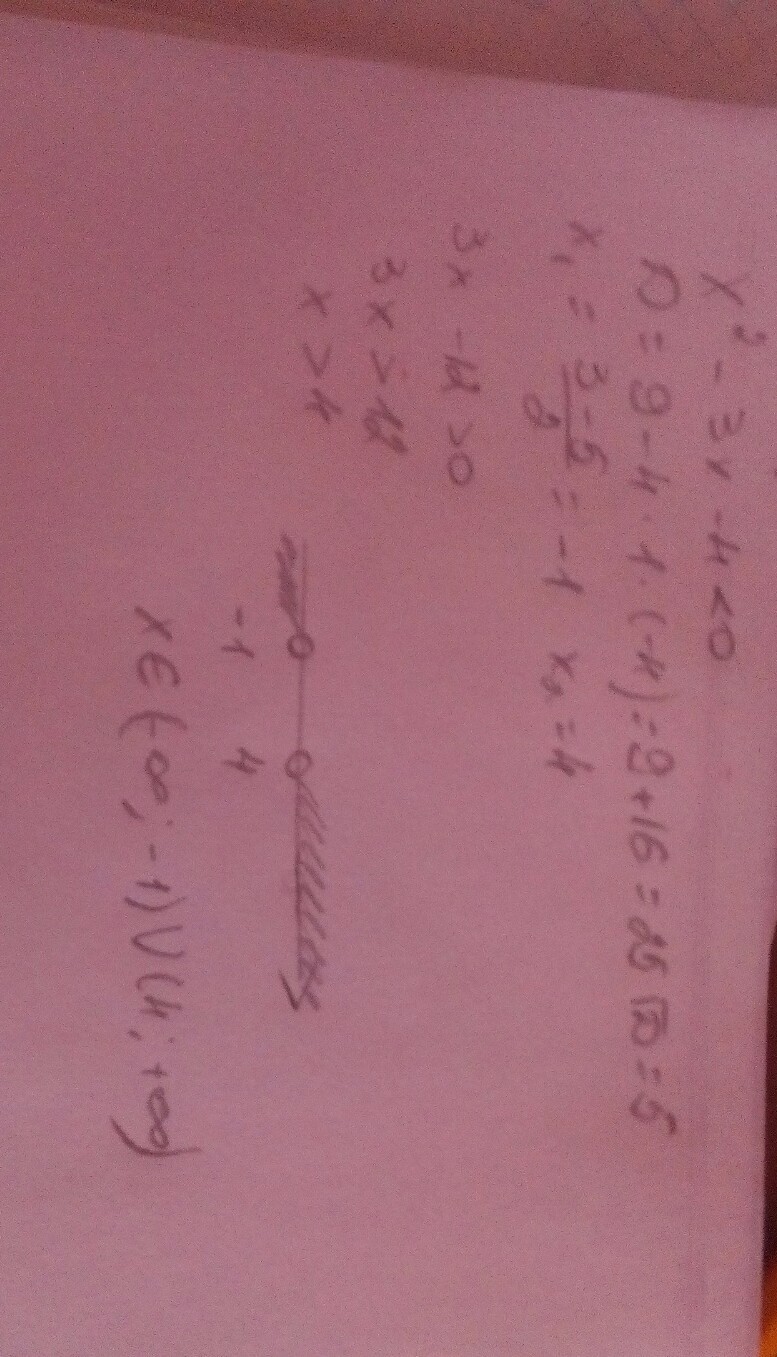 x² - 3x - 4 < 0
D = 9 - 4 · 1 · (-4) = 9 + 16 = 25 √D = 5
x₁ = (3 - 5)/2 = -1 x₂ = 4
3x - 12 > 0
3x > 12
x > 4
-1 4
x ∈ (-∞; -1) ∪ (4; +∞)